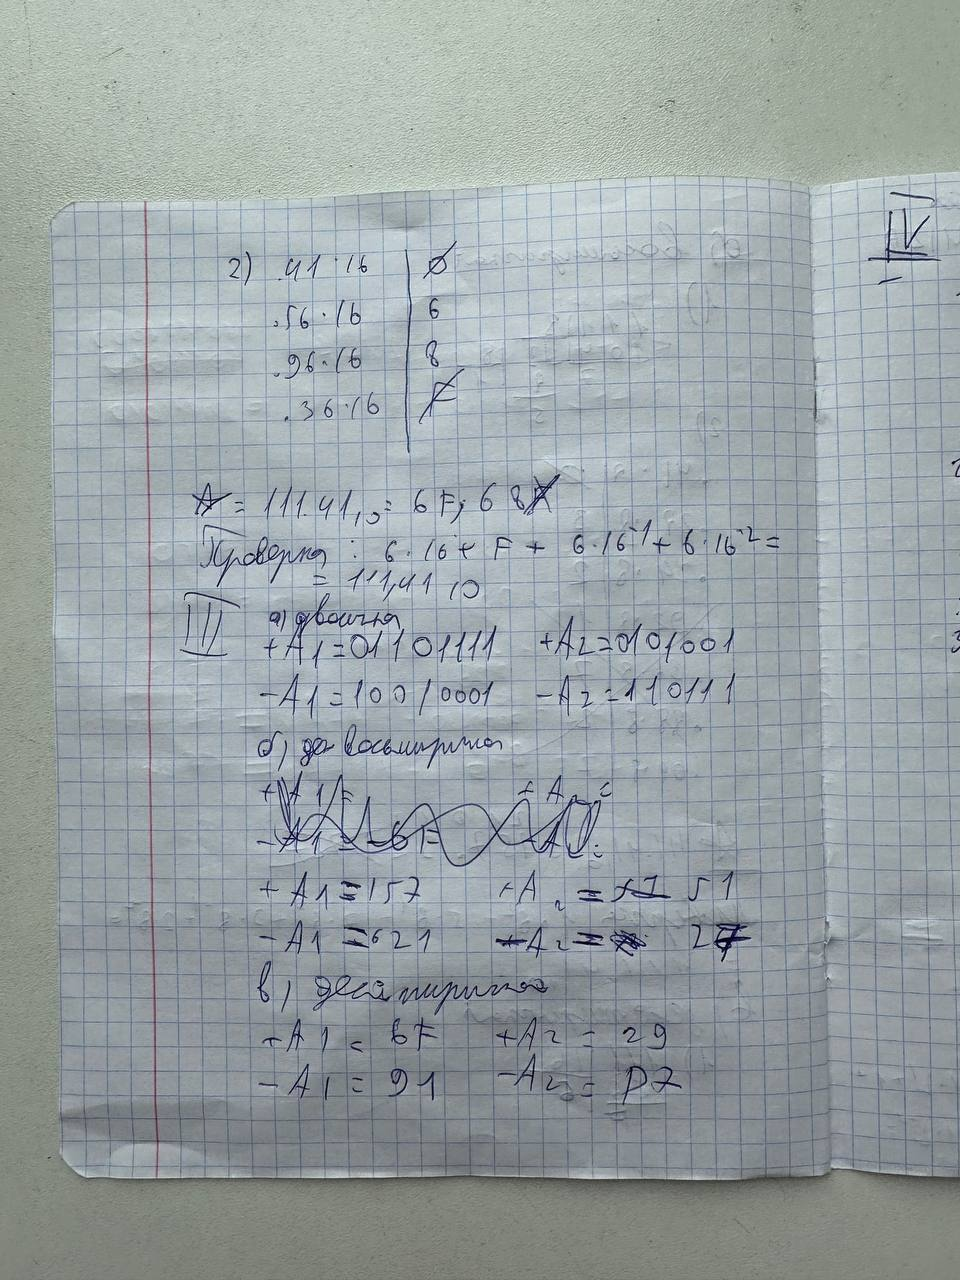 2) .41·16 | 0
.56·16 | 6
.96·16 | 8
.36·16 | F
IV
A = 111.41₁₀ = 6F,68
Проверка: 6·16 + F + 6·16⁻¹ + 6·16⁻² =
= 111,41 10
III а) двоична
+A1=01101111 +A2=0101001
-A1=10010001 -A2=110111
б) до восьмирична
+A1=157 +A2= 51
-A1=621 -A2= 27
в)
+A1= 6F +A2= 29
-A1= 91 -A2= D7